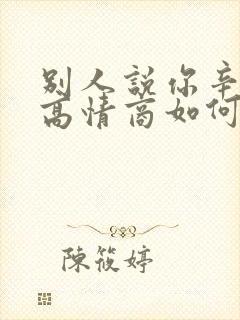 別人說你辛
高情商如何
陳筱婷